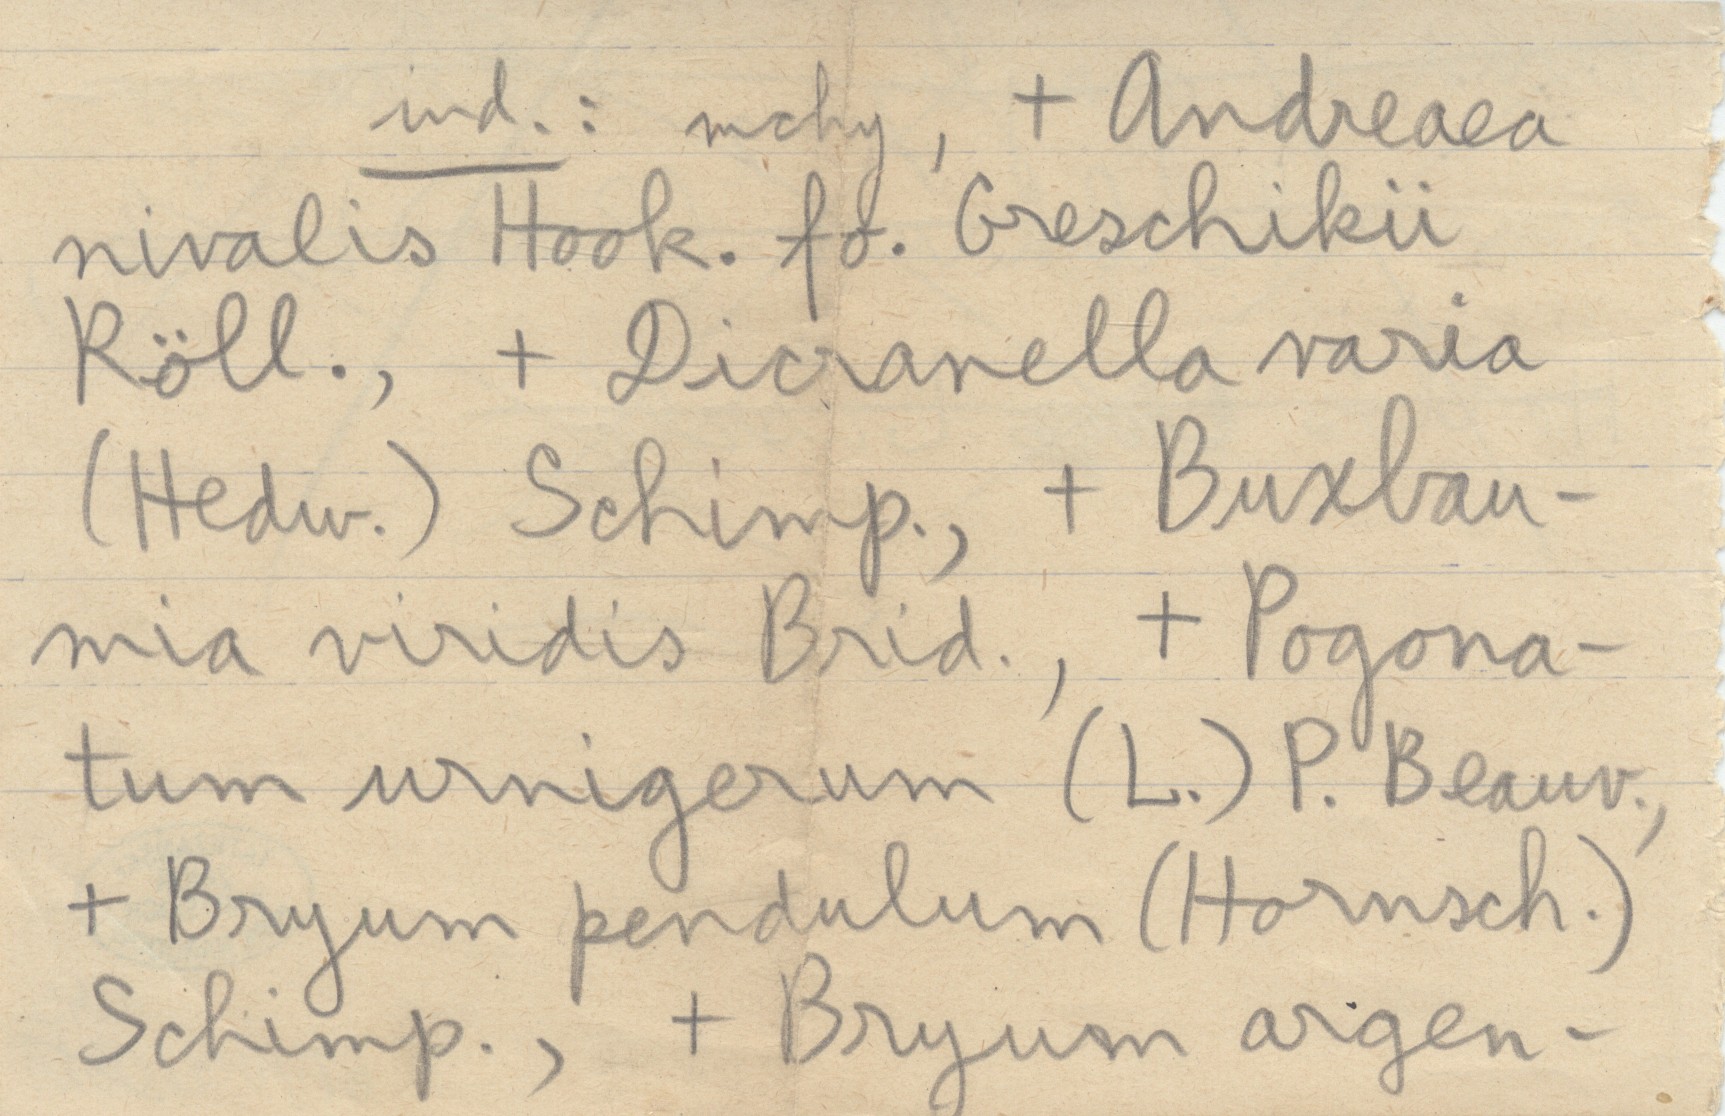 ind.: mchy, + Andreaea
nivalis Hook. fo. Greschikii
Röll., + Dicranella varia
(Hedw.) Schimp., + Buxbau-
mia viridis Brid., + Pogona-
tum urnigerum (L.) P. Beauv.,
+ Bryum pendulum (Hornsch.)
Schimp., + Bryum argen-